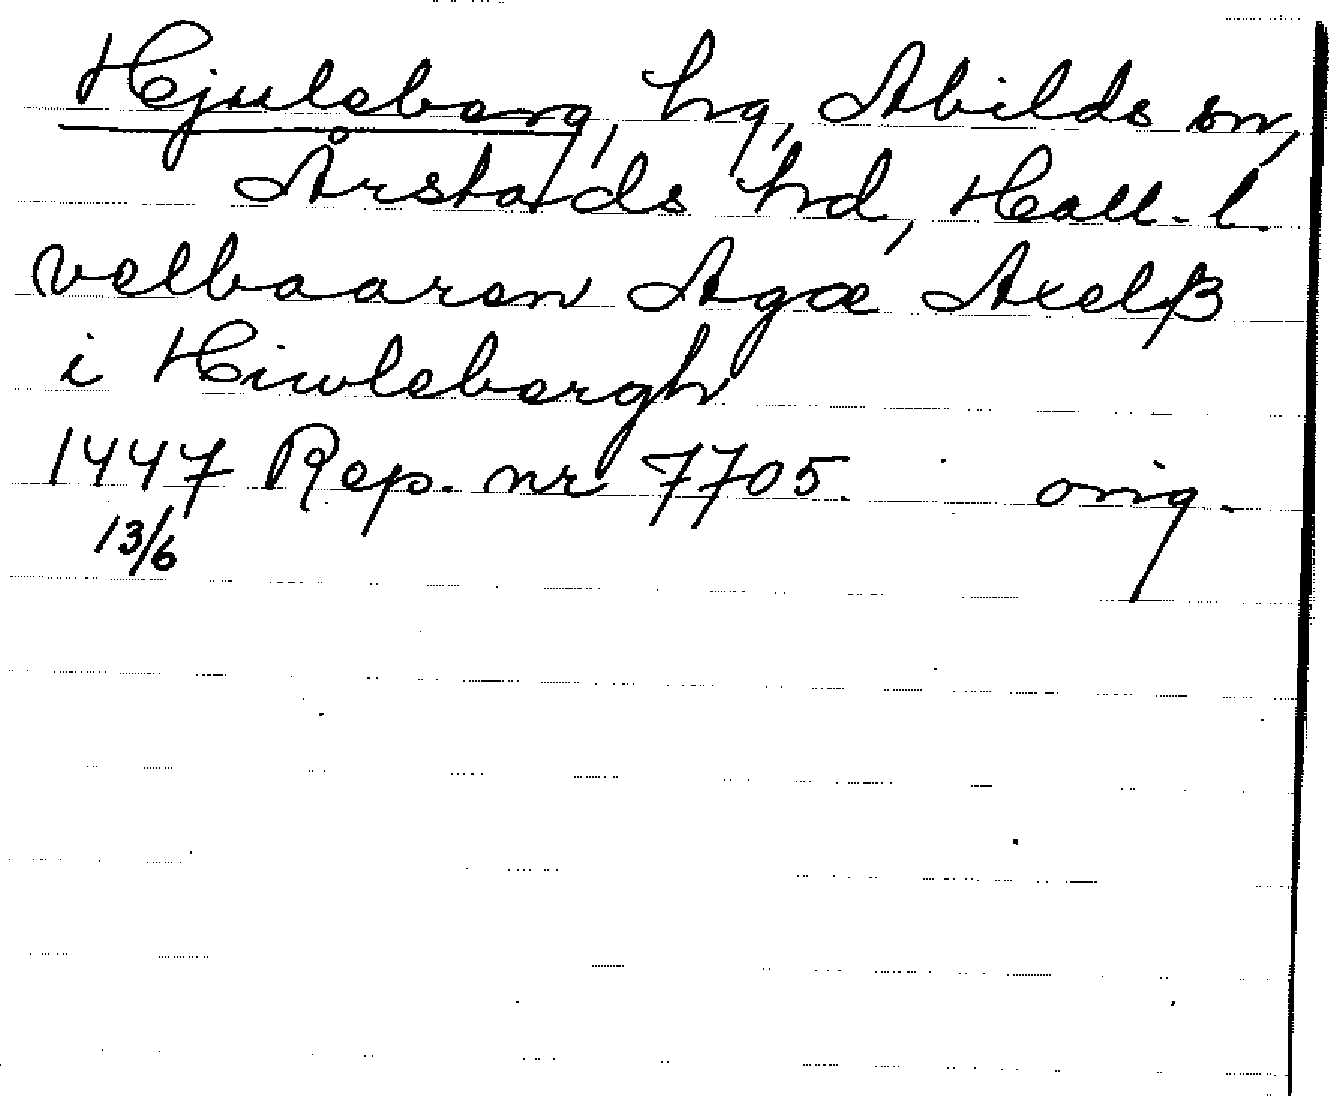 Hjuleberg, hg, Abilds sn,
Årstads hd, Hall. l.
velbaaren Agæ Axelß
i Hiwlebergh
1447 Rep. nr 7705. orig.
13/6